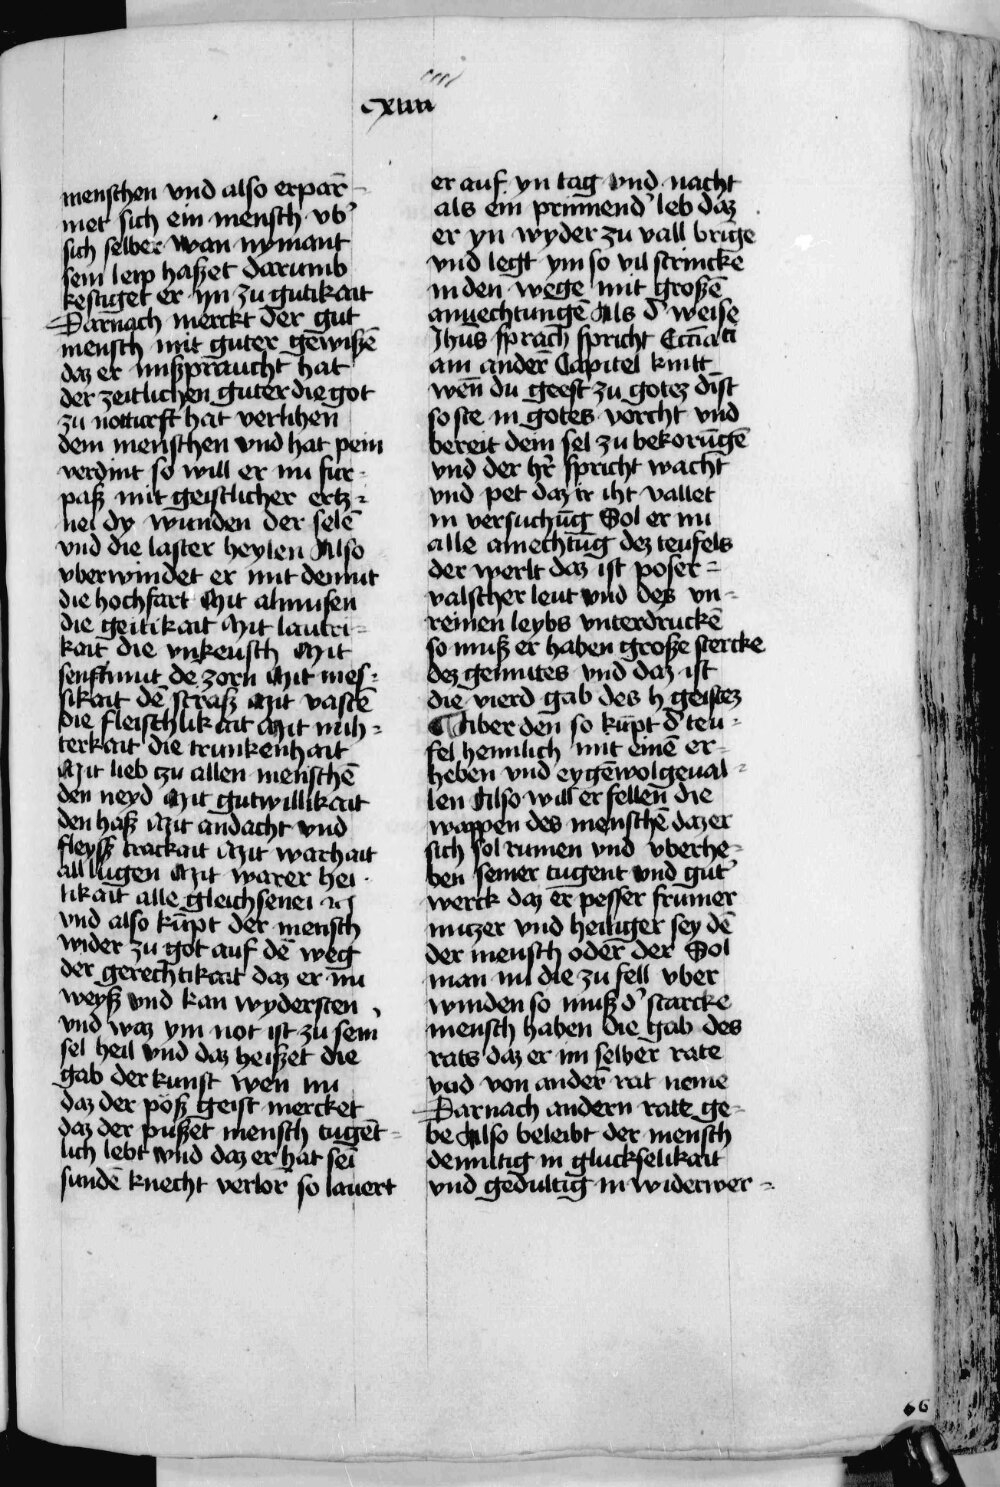 cxiiii
menschen vnd also erpar̄-
met sich ein mensch vb'
sich selber Wan nymant
sein leip haßet darumb
kestiget er yn zu gutikait
Darnach merckt der gut
mensch mit guter gewißē
daz er mißpraucht hat
der zeitlichen guter die got
zu notturft hat verlihen
dem menschen vnd hat pein
verdint so will er nu fur-
paß mit geistlicher ertz-
nei dy wunden der selē
vnd die laster heylen Also
vberwindet er mit demut
die hochfart Mit almusen
die geitikait Mit lautri-
kait die vnkeusch Mit
senftmut dē zorn Mit mes-
sikait dē fraß Mit vastē
die fleischlikait Mit nuh-
terkait die trunkenhait
Mit lieb tzu allen menschē
den neyd Mit gutwillikait
den haß Mit andacht vnd
fleyß trackait Mit warhait
all lugen Mit warer hei-
likait alle gleichsenei
vnd also kūpt der mensch
wider zu got auf dē weg
der gerechtikait daz er nu
weyß vnd kan wydersten
vnd waz ym not ist zu sein
sel heil vnd daz heißet die
gab der kunst wen nu
daz der pöß geist mercket
daz der pußet mensch tugēt-
lich lebt vnd daz er hat sei
sundē knecht verlor̄ so lauert
er auf yn tag vnd nacht
als ein prinnend' leb daz
er yn wyder zu vall bringe
vnd legt ym so vil strincke
in den wege mit großē
anuechtungē Als d' weise
Jhūs sprach spricht Eccīati
am anderē Capitel kintt
wen du geest zu gotez dīst
so ste in gotes vorcht vnd
bereit dein sel zu bekorūgē
vnd der hr̄ spricht wacht
vnd pet daz ir iht vallet
in versuchūg Sol er nu
alle anechtūg dez teufels
der werlt daz ist poser-
valscher leut vnd dez vn-
reinen leybs vnterdruckē
so muß er haben große stercke
dez gemutes vnd daz ist
die vierd gab des h geistez
Vber den so kūpt d' teu-
fel heimlich mit einē er-
heben vnd eygēwolgeual-
len Also will er fellen die
wappen des menschē daz er
sich sol rumen vnd vberhe-
ben seiner tugent vnd gut'
werck daz er pesser frumer
nutzer vnd heiliger sey dē
der mensch oder der Sol
man nu die zu fell vber
winden so muß d' starcke
mensch haben die gab des
rats daz er im selber rate
vnd von ander̄ rat neme
Darnach andern rate ge-
be Also beleibt der mensch
demütig in gluckselikait
vnd gedultig in widerwer-
66